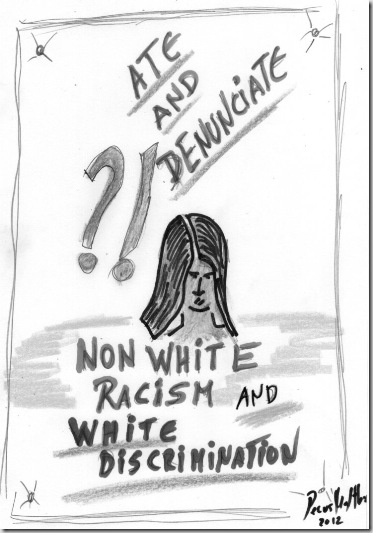 ATE
AND
DENUNCIATE
?!
NON WHITE
RACISM AND
WHITE
DISCRIMINATION
2012